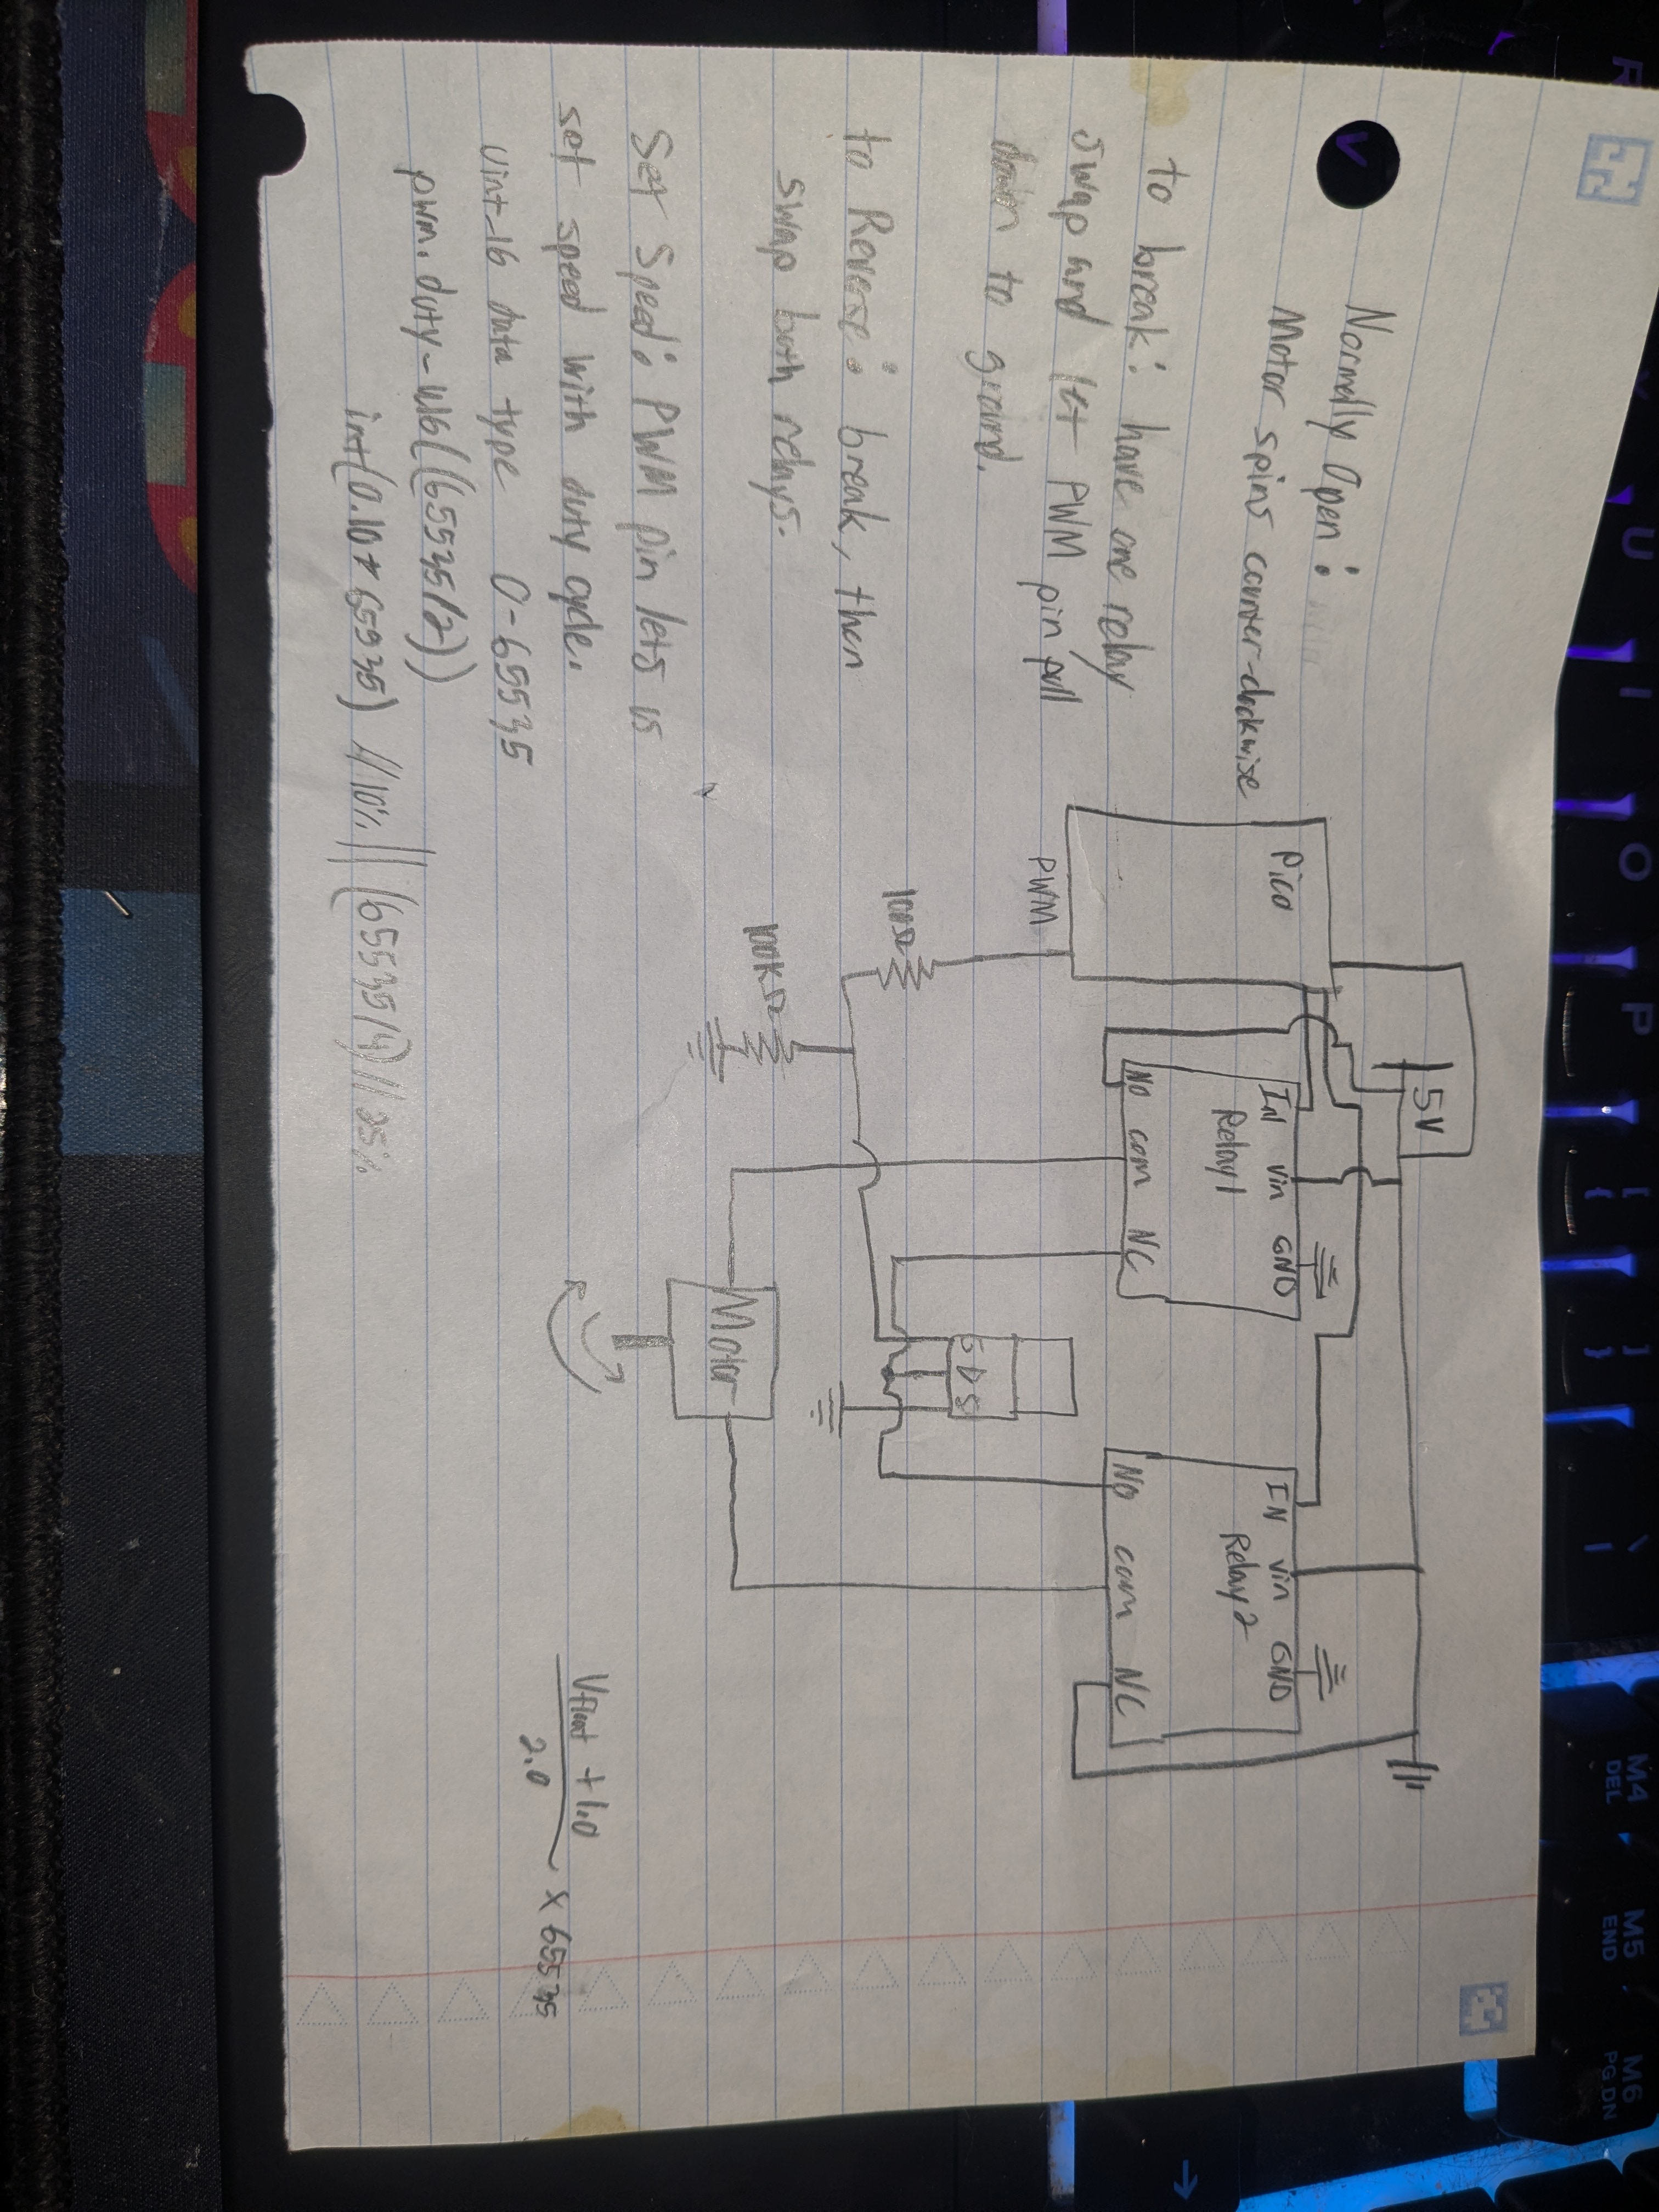 Normally Open:
Motor spins counter-clockwise
to break: have one relay
swap and let PWM pin pull
down to ground.
to Reverse: break, then
swap both relays.
Set Speed: PWM pin lets us
set speed with duty cycle.
uint-16 data type 0-65535
pwm.duty-u16((65535/2))
int(0.10*65535) //10% || (65535/4) // 25%
5V
Pico
PWM
100Ω
100KΩ
IN Vin GND
Relay1
NO com NC
IN Vin GND
Relay2
NO com NC
G D S
Motor
Vfloat + 1.0
2.0
x 65535
R
U
I
O
P
[
{
]
}
\
|
M4
DEL
M5
END
M6
PG DN
→